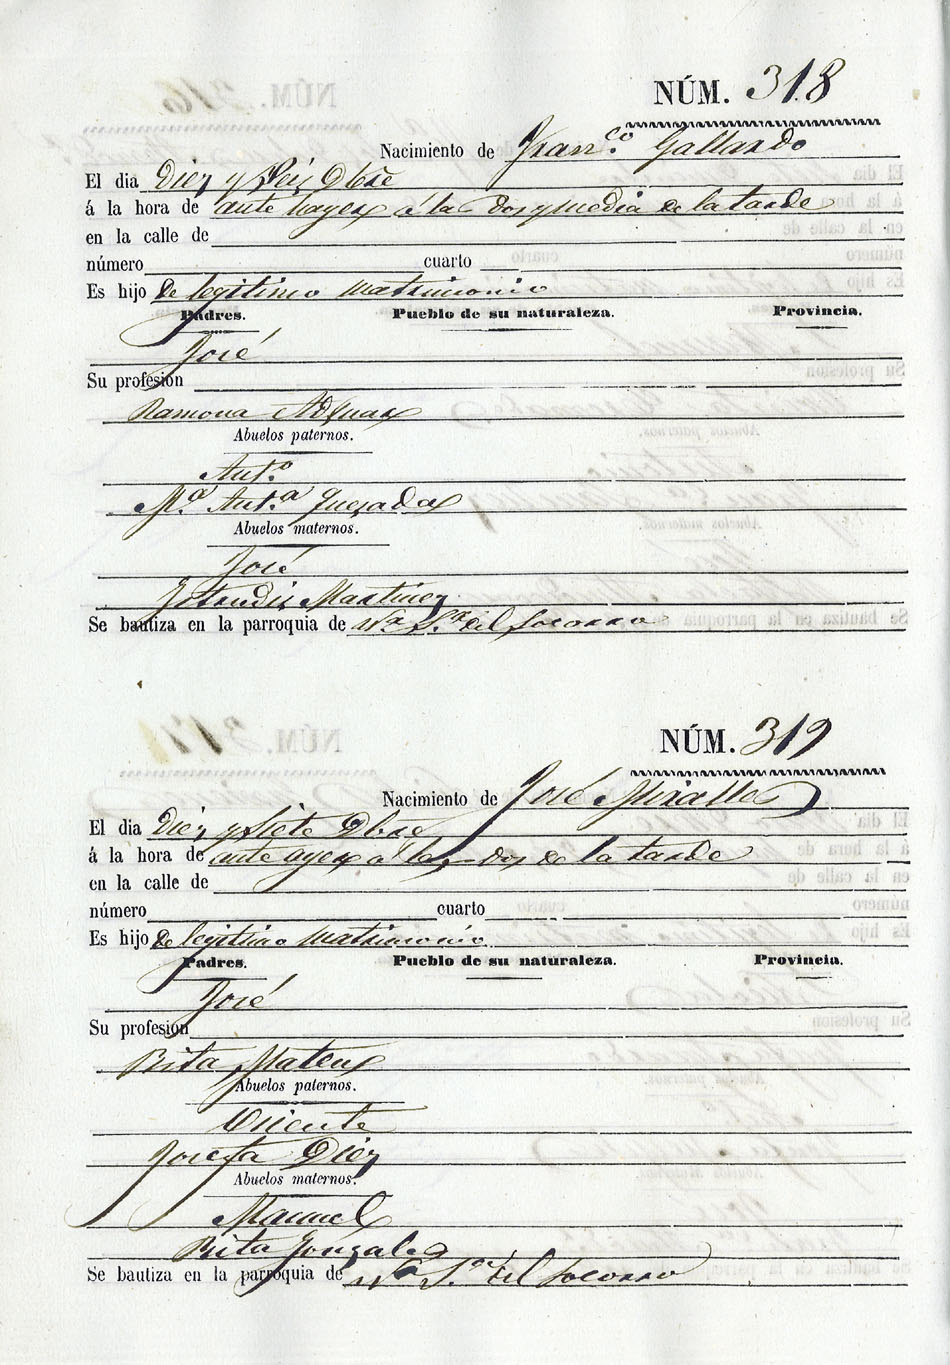 NÚM. 318
Nacimiento de Franco. Gallardo
El dia Diez y Seis Dbre
á la hora de ante hayer á las dos y media de la tarde
en la calle de
número cuarto
Es hijo de legitimo matrimonio
Padres. Pueblo de su naturaleza. Provincia.
José
Su profesión
Ramona
Abuelos paternos.
Anto.
Ma. Anta. Quezada
Abuelos maternos.
José
Getrudis Martinez
Se bautiza en la parroquia de Na. Sra. del Socorro
NÚM. 319
Nacimiento de José Miralles
El dia Diez y Siete Dbre
á la hora de ante ayer á las dos de la tarde
en la calle de
número cuarto
Es hijo de legitimo matrimonio
Padres. Pueblo de su naturaleza. Provincia.
José
Su profesión
Rita Mateu
Abuelos paternos.
Vicente
Josefa Diez
Abuelos maternos.
Manuel
Rita Gonzales
Se bautiza en la parroquia de Na. Sa. del Socorro